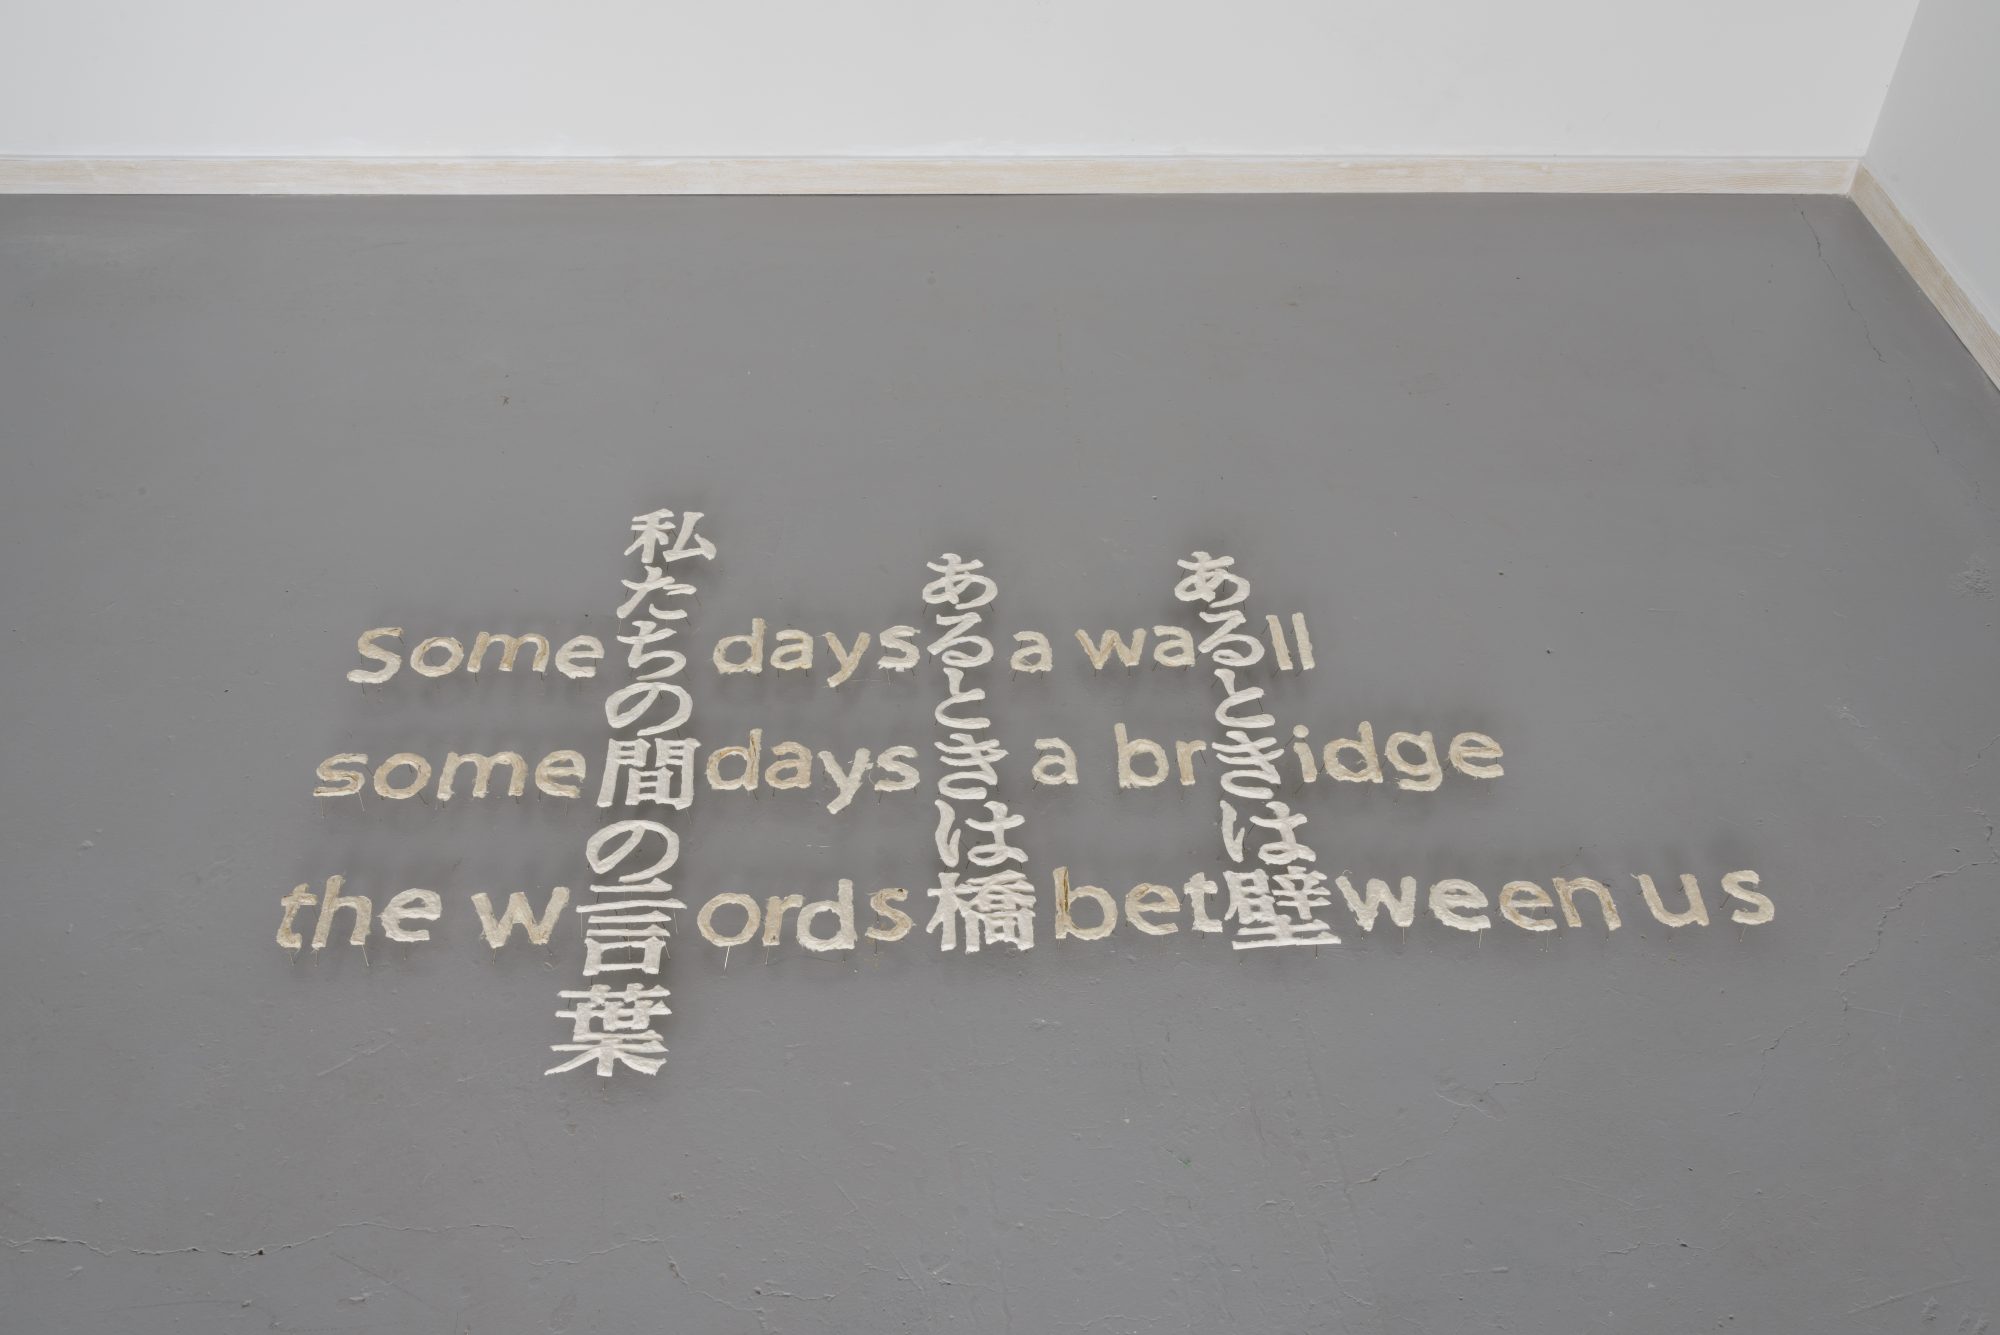 Some days a wall
some days a bridge
the words between us
あるときは壁
あるときは橋
私たちの間の言葉